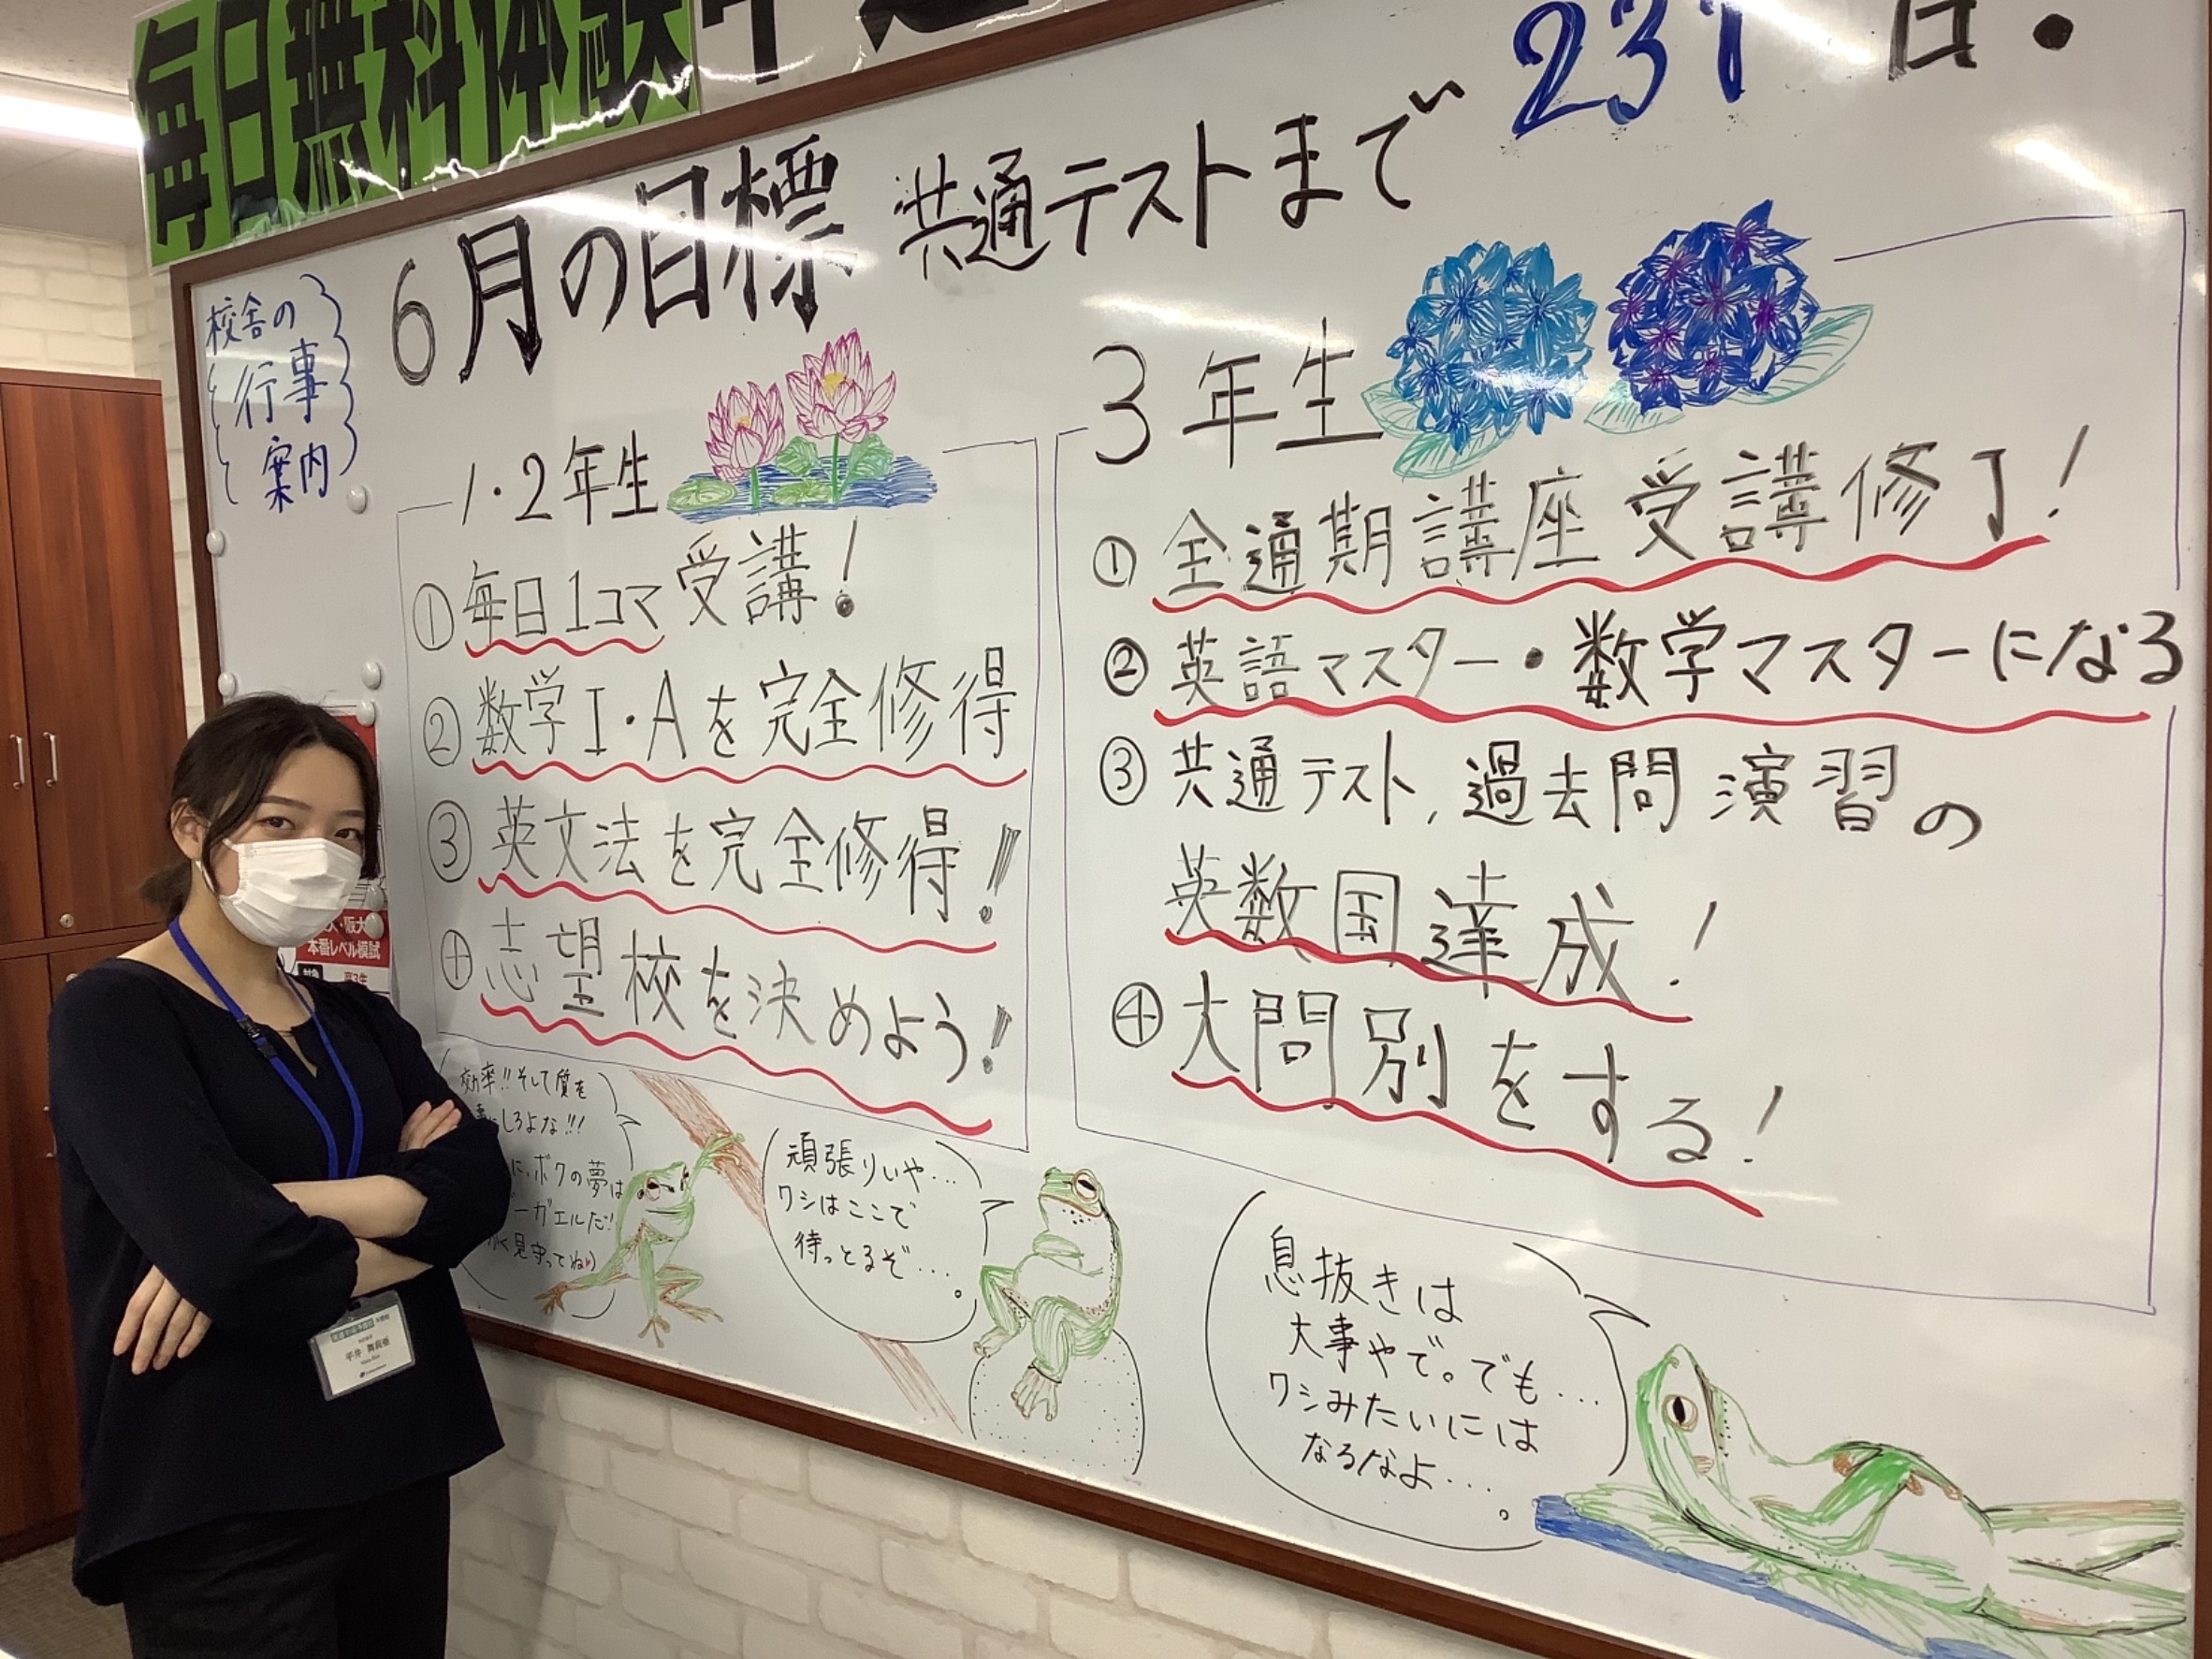 毎日無料体験
6月の目標 共通テストまで 231日.
校舎の
行事
案内
1・2年生
①毎日1コマ受講!
②数学I・Aを完全修得
③英文法を完全修得!
④志望校を決めよう!
3年生
①全通期講座受講修了!
②英語マスター・数学マスターになる
③共通テスト,過去問演習の
英数国達成!
④大問別をする!
効率!!そして質を
しろよな!!!
に、ボクの夢は
ーガエルだ!
見守ってね
頑張りぃや…
ワシはここで
待っとるぞ…。
息抜きは
大事やで。でも…
ワシみたいには
なるなよ…。
・阪大
本番レベル模試
平井